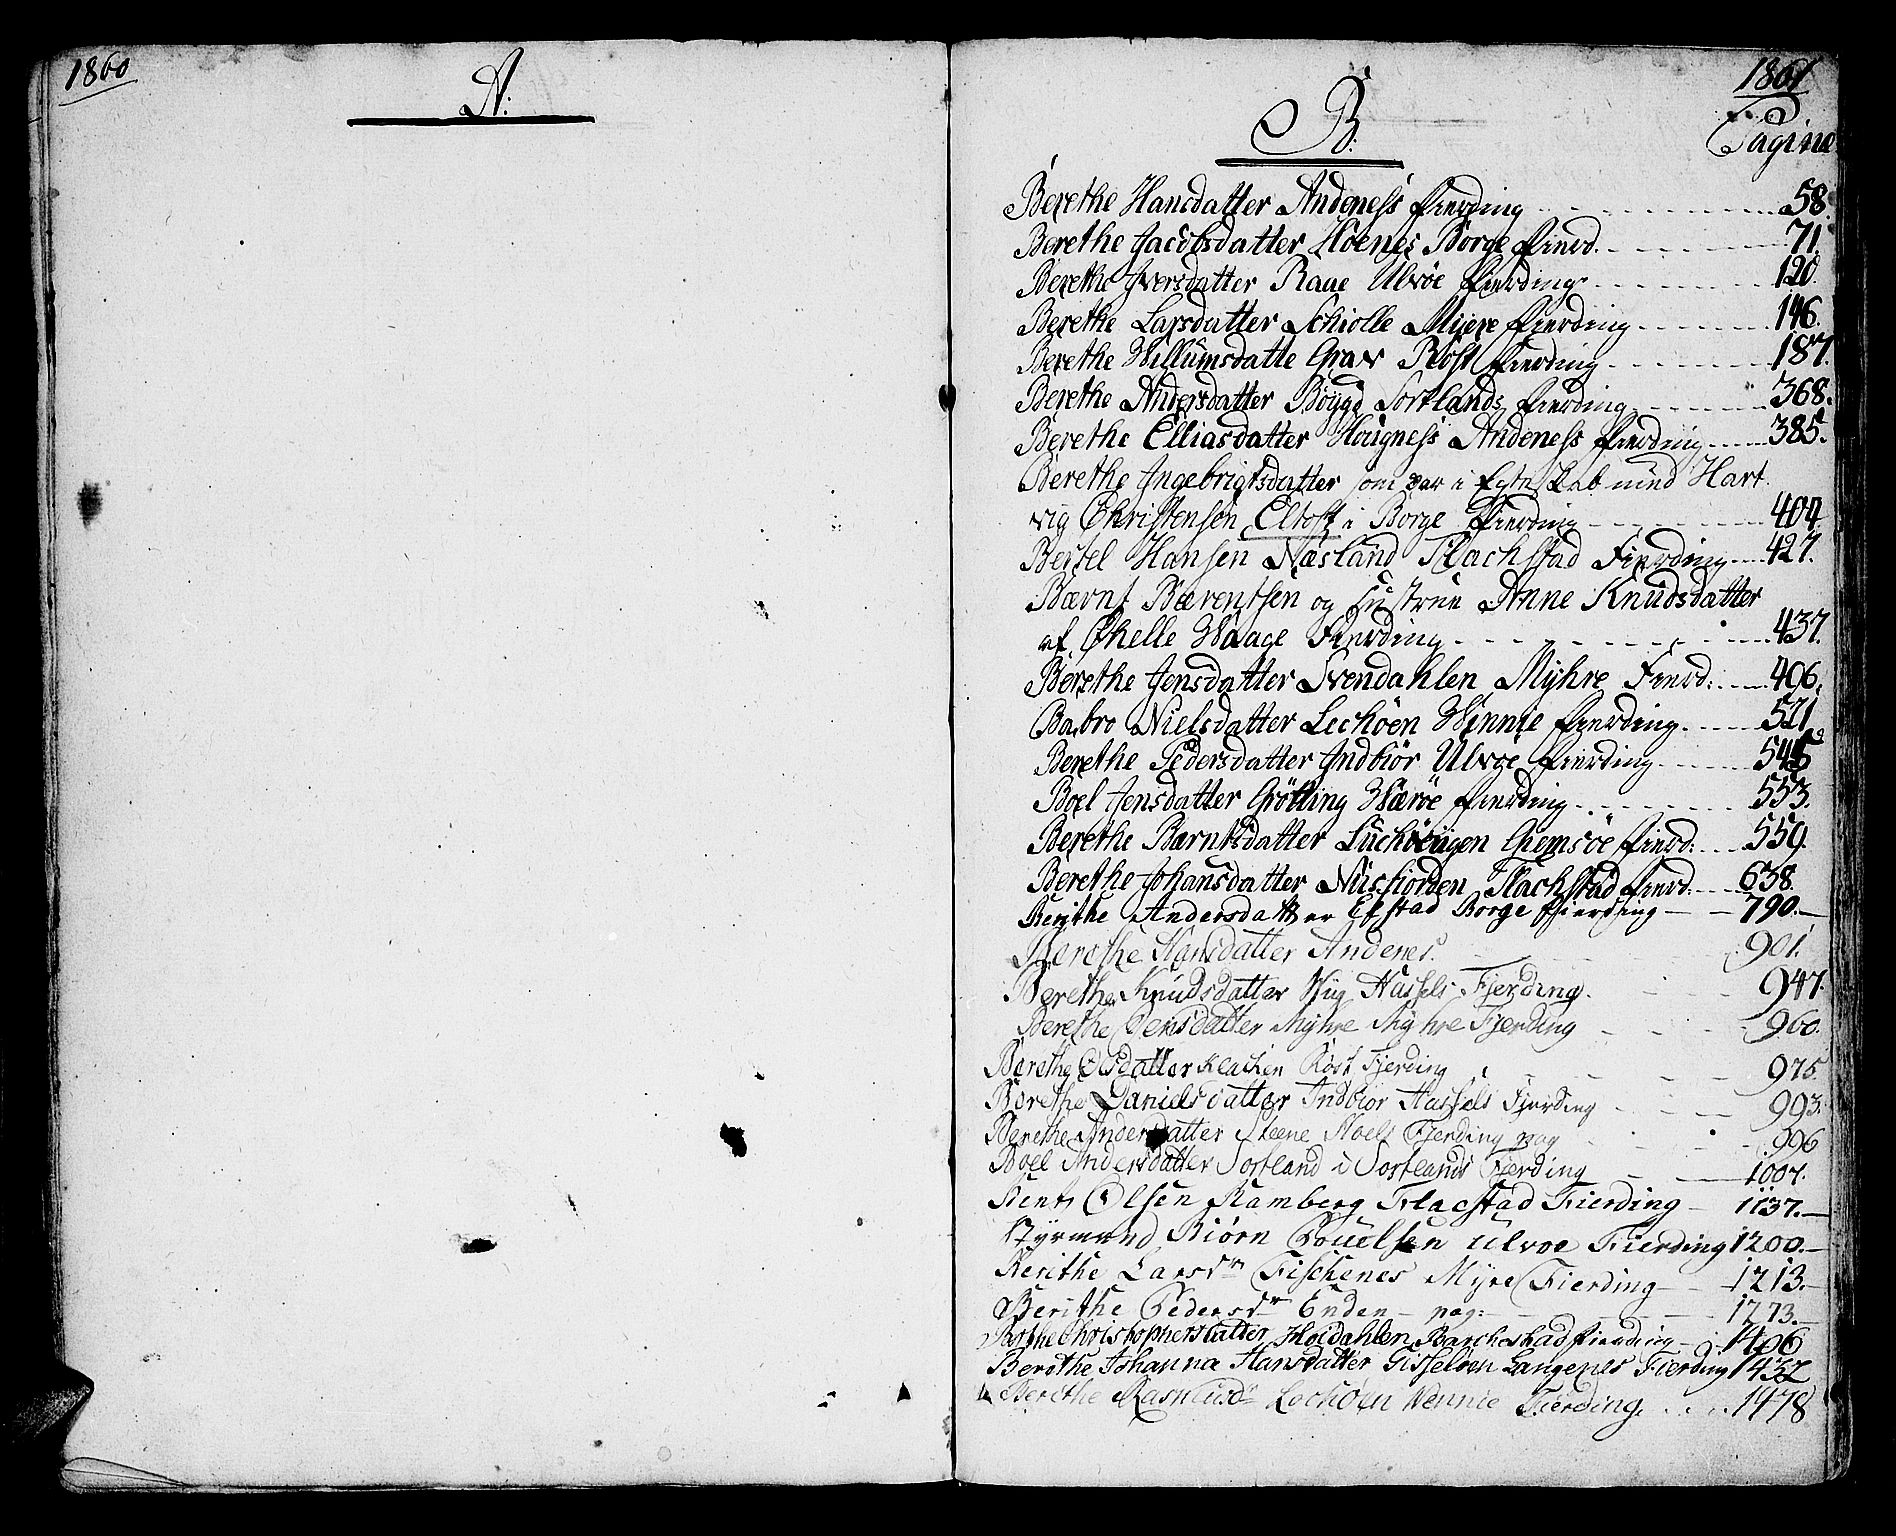 1860
A:
1861
B:
Pagina
Berethe Hansdatter Andeness fierding 58.
Berethe Jacobsdatter Hoenes Borge fierd. 71.
Berethe Iversdatter Raae Ulvöe fierding 120.
Berethe Larsdatter Schiolle Myre fierding 146.
Berethe Willumsdatte Grav Röst fierding 187.
Berethe Andersdatter Böygd Sortlands fierding 368.
Berethe Elliasdatter Hougness Andeness fierding 385.
Berethe Ingebrigtsdatter som var i Egteskab med Hart
vig Christensen Eltoft i Borge fierding 404
Bertel Hansen Næsland Flachstad Fierding 427.
Bærnt Bærentsen og Hustrue Anne Knudsdatter
af Øhelle Waage Fierding 437.
Berethe Jensdatter Svendahlen Myhre Fierd: 406.
Babro Nielsdatter Lechöen Winnie fierding 521
Berethe Pedersdatter Indbiör Ulvöe fierding 545
Boel Jensdatter Grötting Wæröe fierding 553.
Berethe Bærntsdatter Luchövigen Giemsöe fierd: 559.
Berethe Johansdatter Nusfiorden Flachstad fierd. 638.
Berithe Andersdatter Efstad Borge Fierding 790.
Berethe Hansdatter Andenes. 901.
Berethe Knudsdatter Wiig Hassels Fjerding. 947.
Berethe Jensdatter Myhre Myhre Fjerding 960.
Berethe Olsdatter Klacken Röst Fjerding 975.
Berethe Danielsdatter Indbior Hassels Fjerding 993.
Berethe Andersdatter Steene Noels Fjerding pag 996
Boel Andersdatter Sortland i Sortlands Fjerding 1007.
Bent Olsen Ramberg Flacstad Fierding 1137.
Styrmand Biörn Pouelsen Ulvoe Fierding 1200.
Berithe Larsdr Fischenes Myre Fierding 1213.
Berithe Pedersdr Enden pag: 1273.
Berthe Christophersdatter Höidahlen Barchestad fierding 1406
Berethe Johanna Hansdatter Gisselöen Langenes Fierding 1432
Berethe Rasmusdr Lochöen Wennie Fierding. 1478